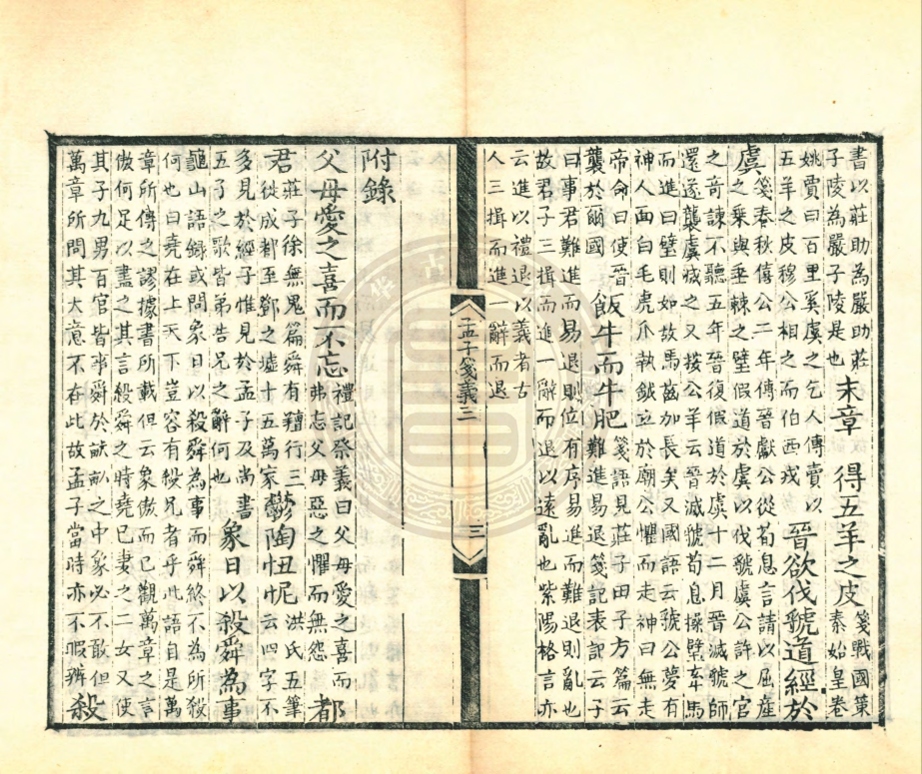 書以莊助為嚴助莊
子陵為嚴子陵是也
末章　得五羊之皮
箋戰國策
秦始皇卷
姚賈曰百里奚虞之乞人傳賣以
五羊之皮穆公相之而伯西戎
晉欲伐虢道經於
虞
箋春秋僖公二年傳晉獻公從荀息言請以屈產
之乗與垂棘之璧假道於虞以伐虢虞公許之宫
之奇諫不聽五年晉復假道於虞十二月晉滅虢師
還遂襲虞滅之又按公羊云晉滅虢荀息操璧牽馬
而進曰璧則如故馬齒加長矣又國語云虢公夢有
神人面白毛虎爪執鉞立於廟公懼而走神曰無走
帝命曰使晉
襲於爾國
飯牛而牛肥
箋語見莊子田子方篇云
難進易退箋記表記云子
曰事君難進而易退則位有序易進而難退則亂也
故君子三揖而進一辭而退以遠亂也紫陽格言亦
云進以禮退以義者古
人三揖而進一辭而退
孟子箋義三
三
附錄
父母愛之喜而不忘
禮記祭義曰父母愛之喜而
弗忘父母惡之懼而無怨
都
君
莊子徐無鬼篇舜有羶行三
從成都至鄧之墟十五萬家
鬱陶忸怩
洪氏五筆
云四字不
多見於經子惟見於孟子及尚書
五子之歌皆弟告兄之辭何也
象日以殺舜為事
龜山語録或問象日以殺舜為事而舜終不為所殺
何也曰堯在上天下豈容有殺兄者乎此語自是萬
章所傳之謬據書所載但云象傲而已觀萬章之言
傲何足以盡之其言殺舜之時堯已妻之二女又使
其子九男百官皆事舜於畎畝之中象必不敢但
萬章所問其大意不在此故孟子當時亦不暇辨
殺